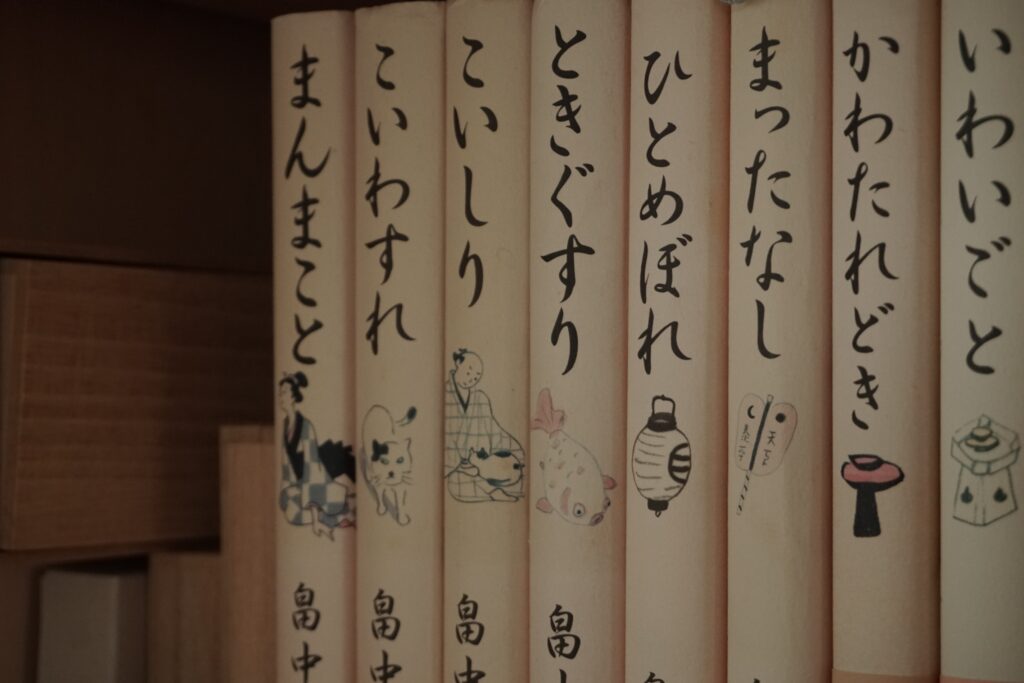 まんまこと
畠中
こいわすれ
畠中
こいしり
畠中
ときぐすり
畠
ひとめぼれ
まったなし
かわたれどき
いわいごと